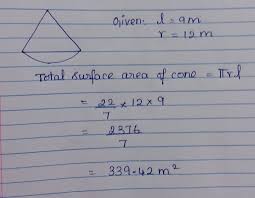 Given: l = 9m
r = 12 m
Total surface area of cone = πrl
= 22/7 × 12 × 9
= 2376/7
= 339.42 m²